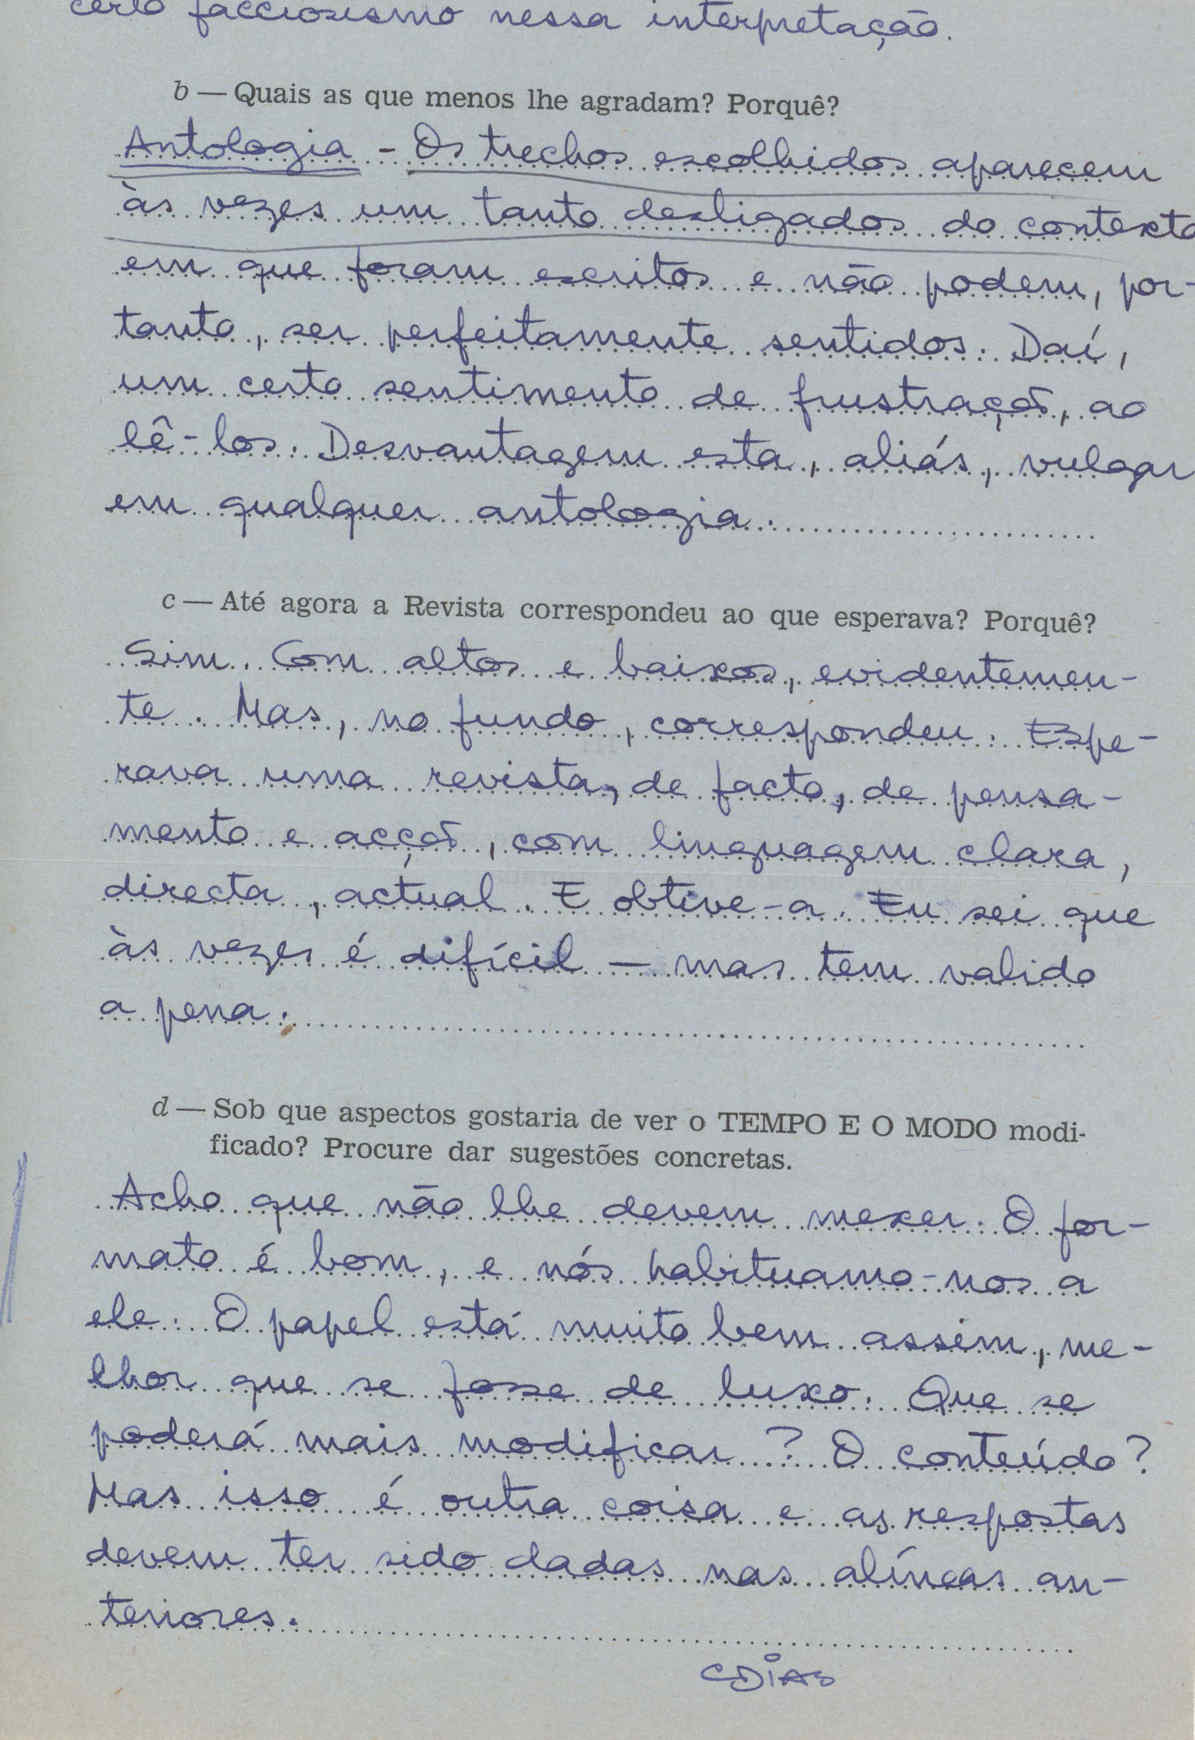 certo facciosismo nessa interpretação.
b — Quais as que menos lhe agradam? Porquê?
Antologia - Os trechos escolhidos aparecem
às vezes um tanto desligados do contexto
em que foram escritos e não podem, por-
tanto, ser perfeitamente sentidos. Daí,
um certo sentimento de frustração, ao
lê-los. Desvantagem esta, aliás, vulgar
em qualquer antologia.
c — Até agora a Revista correspondeu ao que esperava? Porquê?
Sim. Com altos e baixos, evidentemen-
te. Mas, no fundo, correspondeu. Espe-
rava uma revista, de facto, de pensa-
mento e acção, com linguagem clara,
directa, actual. E obtive-a. Eu sei que
às vezes é difícil — mas tem valido
a pena.
d — Sob que aspectos gostaria de ver o TEMPO E O MODO modi-
ficado? Procure dar sugestões concretas.
Acho que não lhe devem mexer. O for-
mato é bom, e nós habituamo-nos a
ele. O papel está muito bem assim, me-
lhor que se fosse de luxo. Que se
poderá mais modificar? O conteúdo?
Mas isso é outra coisa e as respostas
devem ter sido dadas nas alíneas an-
teriores.
CDIAS